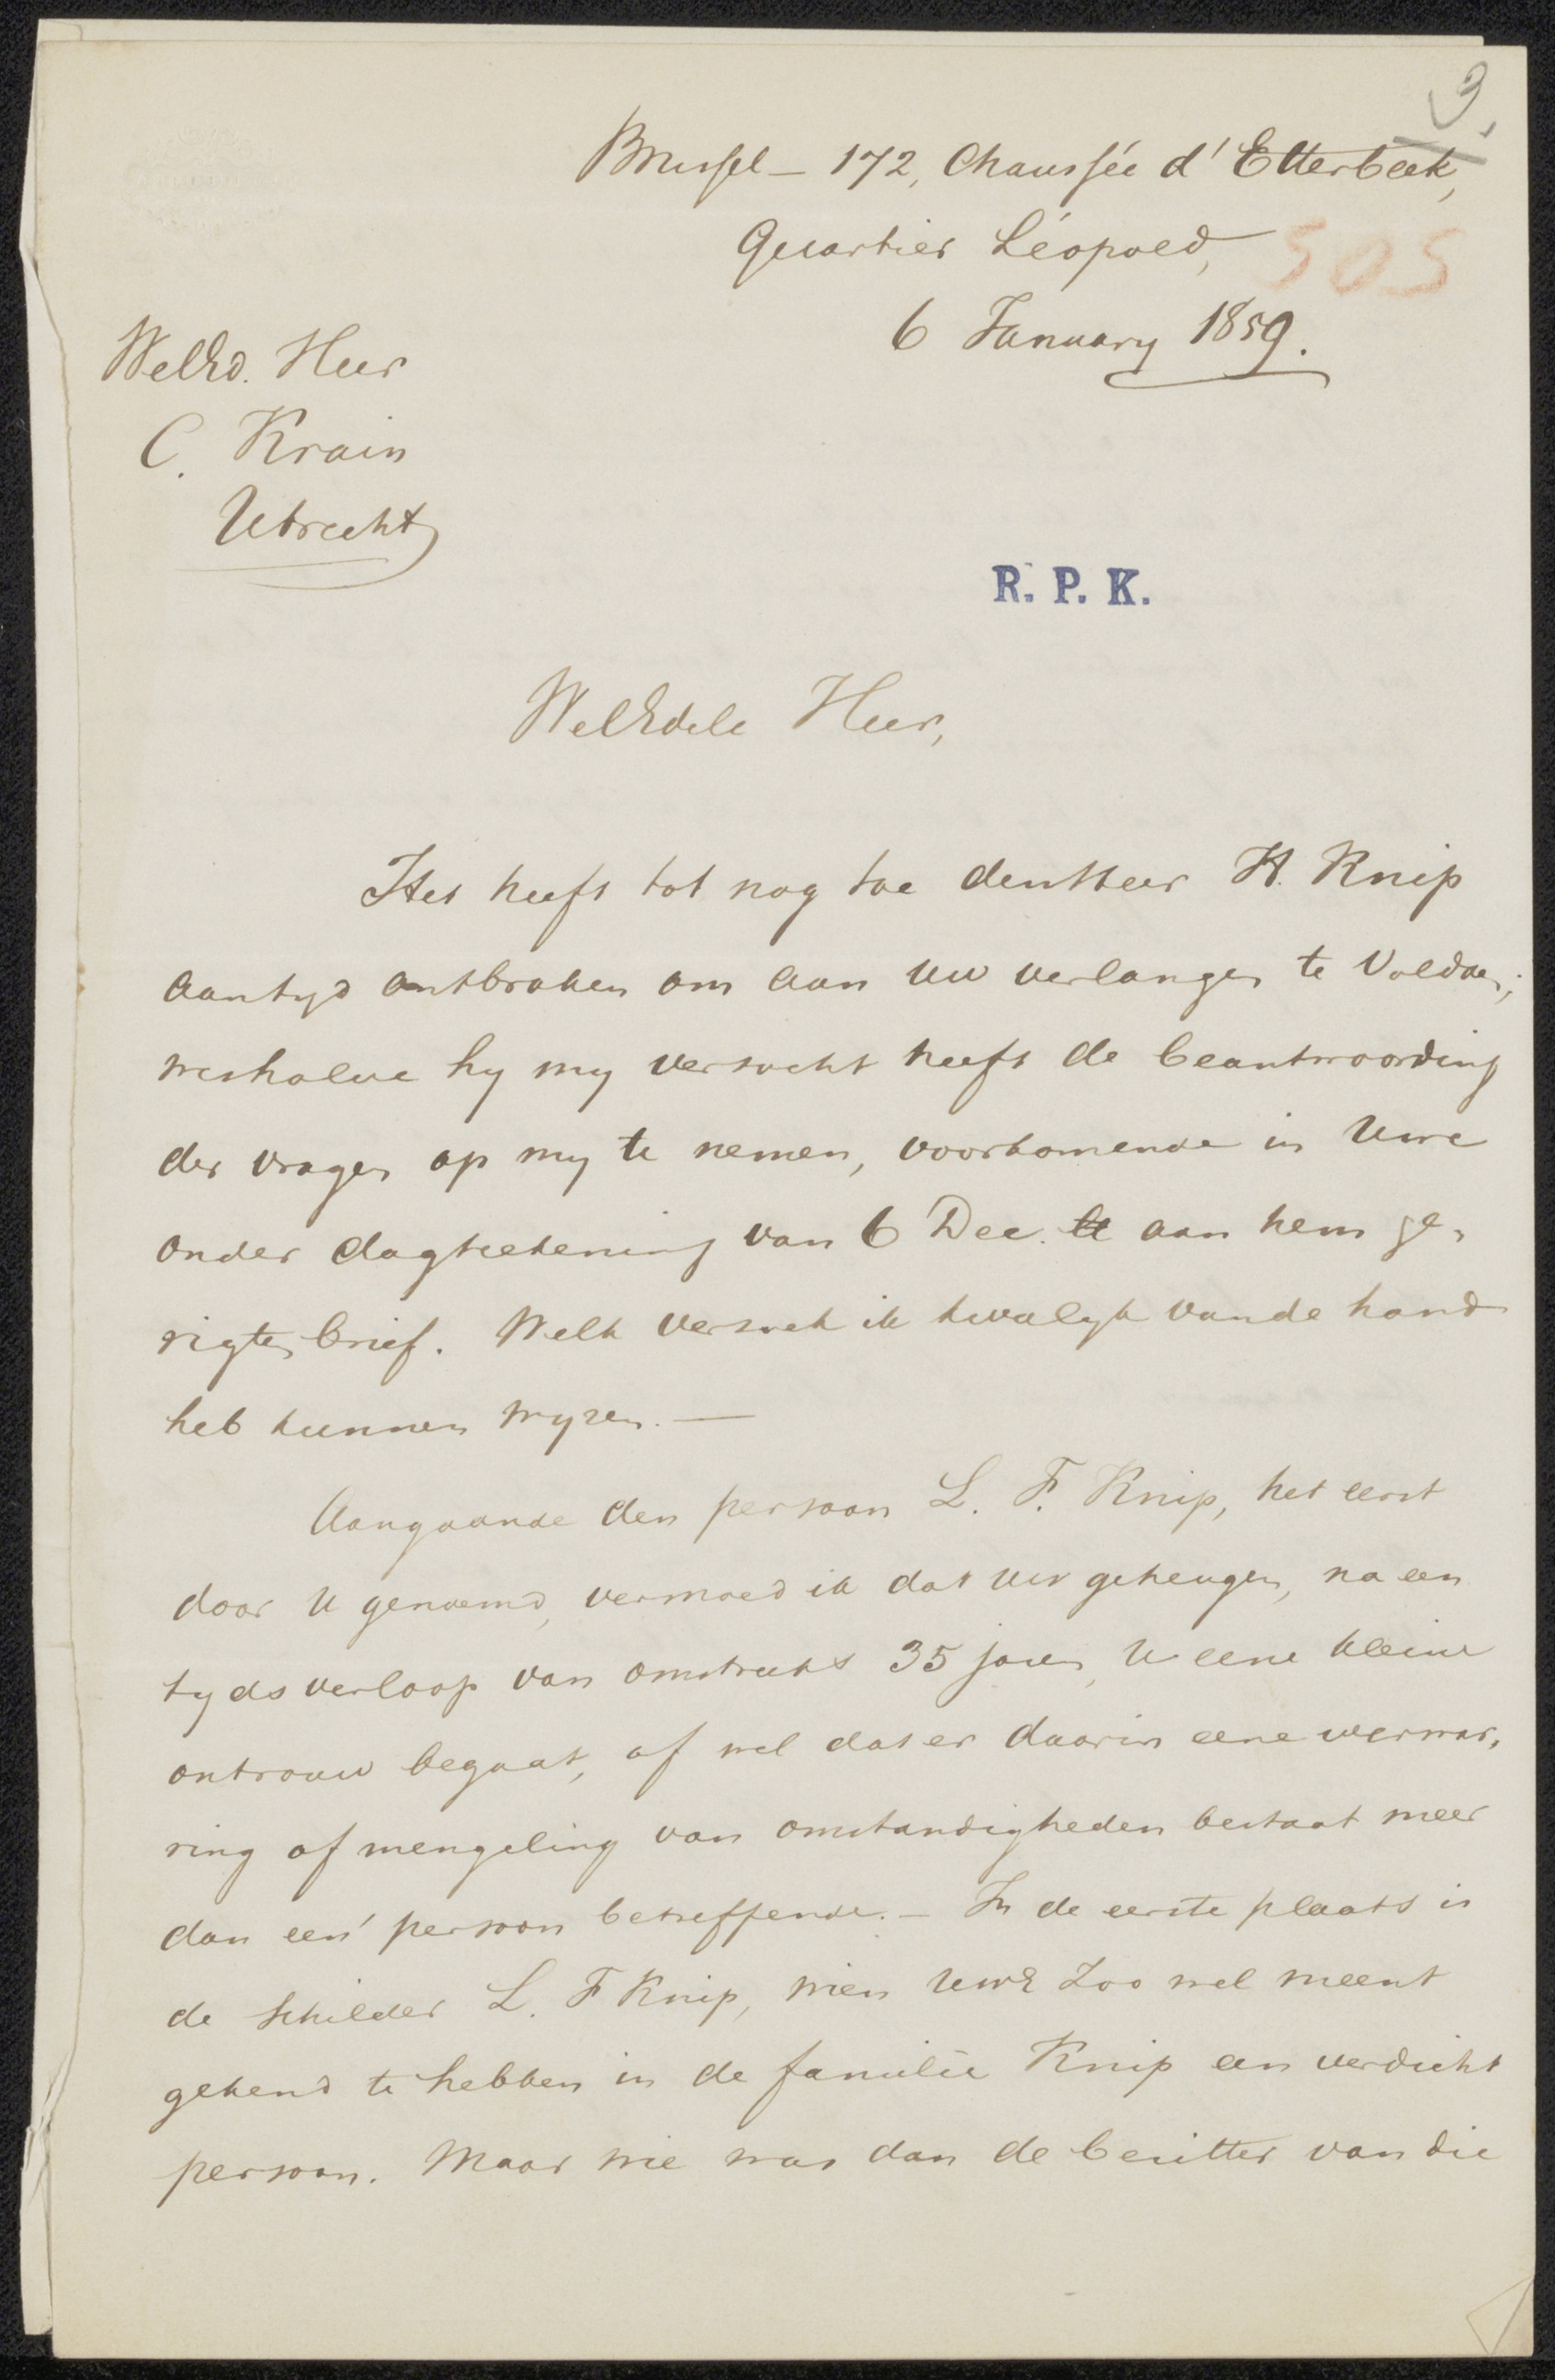 3.
Brussel – 172, Chaussée d'Etterbeek,
Quartier Léopold,
505
6 January 1859.
WelEd. Heer
C. Kram
Utrecht
R. P. K.
WelEdele Heer,
Het heeft tot nog toe den Heer H. Knip
aan tyd ontbroken om aan uw verlangen te voldoen;
weshalve hy my versocht heeft de beantwoording
der vragen op my te nemen, voorkomende in Uwe
onder dagteekening van 6 Dec. aan hem ge,
rigten brief. Welk versoek ik kwalyk van de hand
heb kunnen wyzen. —
Aangaande den persoon L. F. Knip, het eerst
door U genoemd, vermoed ik dat uw geheugen, na een
tydsverloop van omstreeks 35 jaren, U eene kleine
ontrouw begaat, of wel dat er daarin eene verwar,
ring of mengeling van omstandigheden bestaat meer
dan een' persoon betreffende. – In de eerste plaats is
de schilder L. F Knip, wien UwE zoo wel meent
gekend te hebben in de familie Knip een verdicht
persoon. Maar wie was dan de bezitter van die